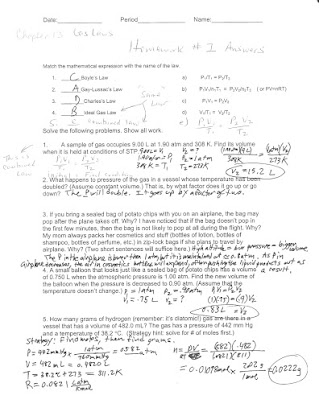 Date: Period Name:
Chapter 13 Gas Laws
Homework # 1 Answers
Match the mathematical expression with the name of the law.
1. C Boyle's Law a) P₁/T₁ = P₂/T₂
2. A Gay-Lussac's Law b) P₁V₁/n₁T₁ = P₂V₂/n₂T₂ (or PV=nRT)
3. D Charles's Law c) P₁V₁ = P₂V₂
4. B Ideal Gas Law d) V₁/T₁ = V₂/T₂
5. E combined Law e) P₁V₁/T₁ = P₂V₂/T₂
Solve the following problems. Show all work.
1. A sample of gas occupies 9.00 L at 1.90 atm and 308 K. Find its volume
when it is held at conditions of STP.
9.00 L = V₁ V₂ = ?
P₂ = 1 atm
T₂ = 273K
V₂ = 15.2 L
This is combined Law
2. What happens to pressure of the gas in a vessel whose temperature has been
doubled? (Assume constant volume.) That is, by what factor does it go up or go
down? The P will double. It goes up by a factor of two.
3. If you bring a sealed bag of potato chips with you on an airplane, the bag may
pop after the plane takes off. Why? I have noticed that if the bag doesn't pop in
the first few minutes, then the bag is not likely to pop at all during the flight. Why?
My mom always packs her cosmetics and stuff (bottles of lotion, bottles of
shampoo, bottles of perfume, etc.) in zip-lock bags if she plans to travel by
airplane. Why? (Two short sentences will suffice here.) High altitude = low pressure = bigger volume
4. A small balloon that looks just like a sealed bag of potato chips has a volume
of 0.750 L when the atmospheric pressure is 1.00 atm. Find the new volume of
the balloon when the pressure is decreased to 0.90 atm. (Assume that the
temperature doesn't change.) P₁ = 1 atm P₂ = .90 atm P₁V₁ = P₂V₂
V₁ = .75 L V₂ = ? (1)(.75) = (.9)V₂
0.83 L = V₂
5. How many grams of hydrogen (remember: it's diatomic) gas are there in a
vessel that has a volume of 482.0 ml? The gas has a pressure of 442 mm Hg
and a temperature of 38.2 °C. (Strategy hint: solve for # of moles first.)
Strategy: Find moles, then find grams.
V = 482 mL = 0.4820 L
T = 38.2 + 273 = 311.2K
= 0.0222g